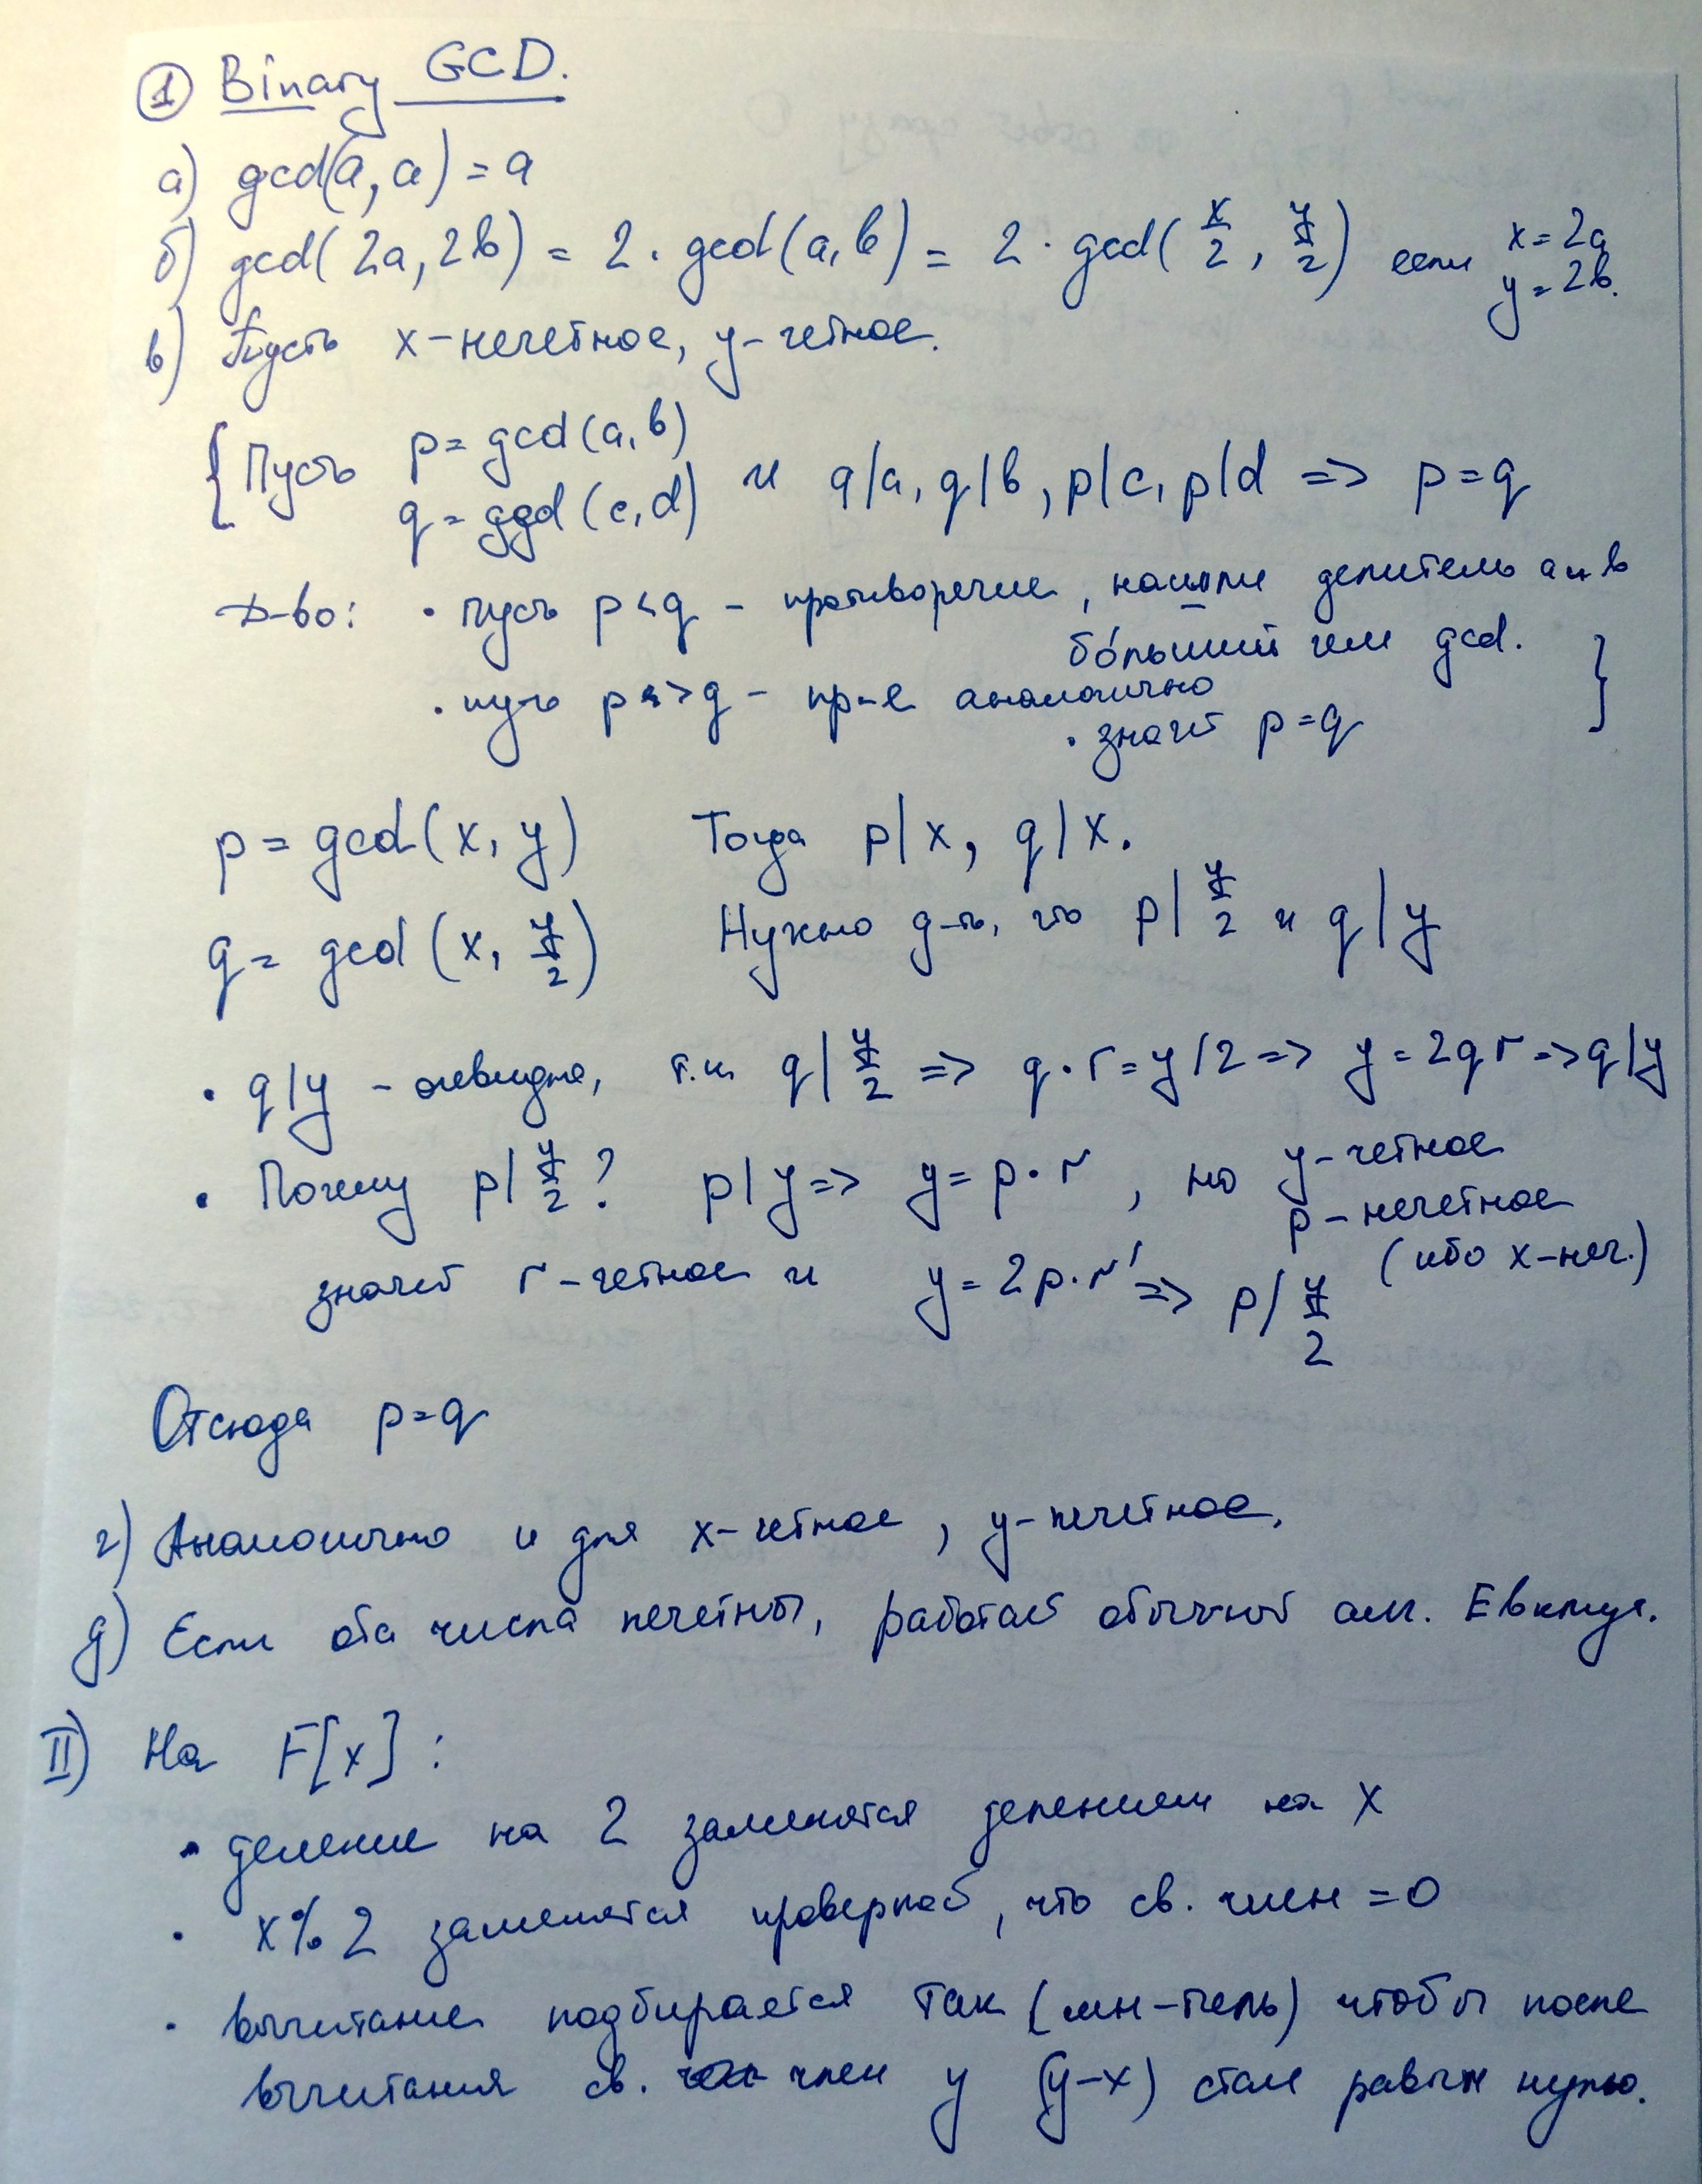 ① Binary GCD.
а) gcd(a, a) = a
б) gcd(2a, 2b) = 2 · gcd(a, b) = 2 · gcd(x/2, y/2) если x = 2a
y = 2b.
в) Пусть x-нечетное, y-четное.
{ Пусть p = gcd(a, b)
q = ggd(c, d) и q|a, q|b, p|c, p|d => p = q
Д-во: • пусть p < q - противоречие, нашли делитель a и b
бо́льший чем gcd.
• пусть p > q - пр-е аналогично }
• значит p = q
p = gcd(x, y) Тогда p|x, q|x.
q = gcd(x, y/2) Нужно д-ть, что p|y/2 и q|y
• q|y - очевидно, т.к. q|y/2 => q·r = y/2 => y = 2qr => q|y
• Почему p|y/2? p|y => y = p·r, но y-четное
p-нечетное
(ибо x-неч.)
значит r-четное и y = 2p·r' => p|y/2
Отсюда p = q
г) Аналогично и для x-четное, y-нечетное.
д) Если оба числа нечетны, работает обычный алг. Евклида.
II) На F[x]:
• деление на 2 заменятся делением на x
• x%2 заменятся проверкой, что св. член = 0
• вычитание подбирается так (мн-тель) чтобы после
вычитания св. член у (y-x) стал равын нулю.